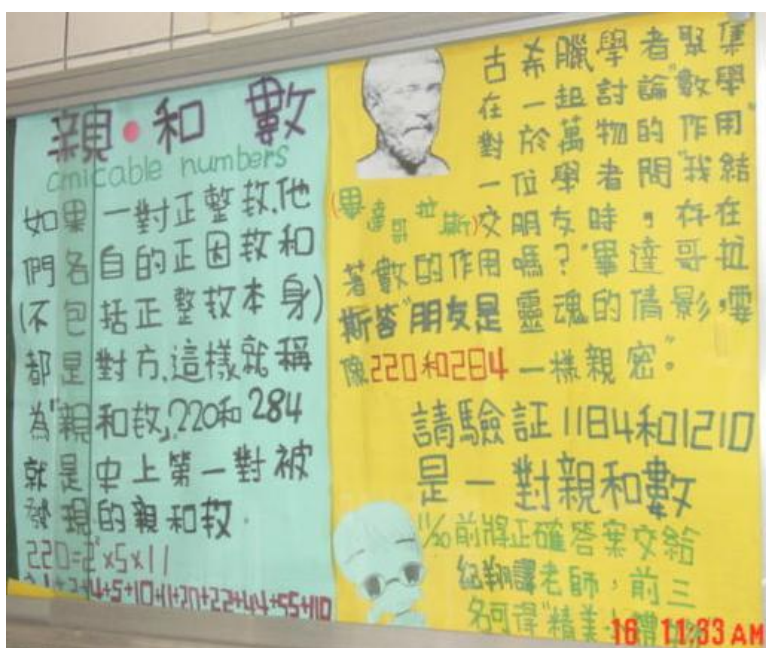 親•和數
amicable numbers
如果一對正整数,他
們各自的正因数和
(不包括正整数本身)
都是對方.這樣就稱
為"親和数,"220和284
就是史上第一對被
發現的親和数.
220=2²×5×11
1+2+4+5+10+11+20+22+44+55+110
古希臘學者聚集
在一起討論"數學
對於萬物的作用"
一位學者問"我結
(畢達哥拉斯)交朋友時,存在
著數的作用嗎?"畢達哥拉
斯答"朋友是靈魂的倩影,要
像220和284一樣親密。"
請驗証1184和1210
是一對親和數
11/20前將正確答案交給
紀翔譯老師,前三
名可得"精美小禮
16 11:33 AM